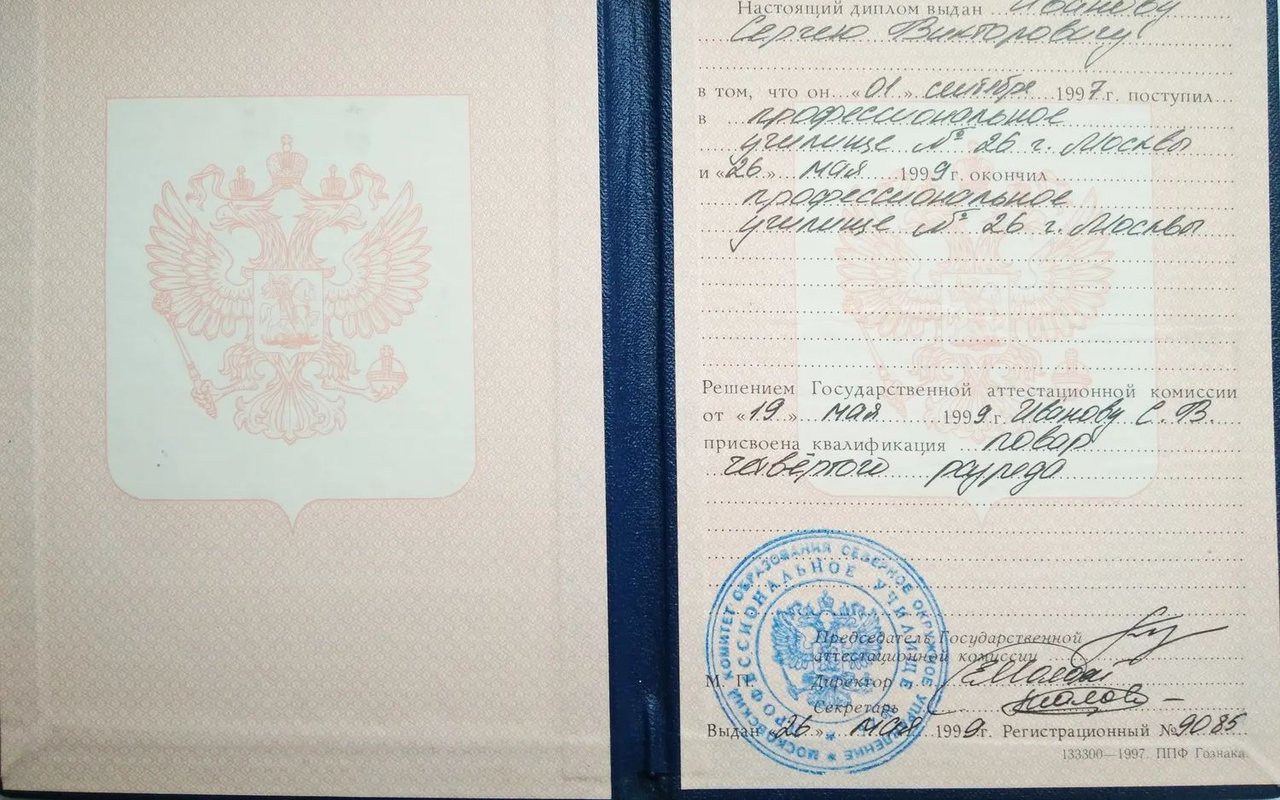 Настоящий диплом выдан Иванову
Сергею Викторовичу
в том, что он «01» сентября 1997 г. поступил
в профессиональное
училище № 26 г. Москвы
и «26» мая 1999 г. окончил
профессиональное
училище № 26 г. Москвы
Решением Государственной аттестационной комиссии
от «19» мая 1999 г. Иванову С. В.
присвоена квалификация повар
четвёртого разряда
МОСКОВСКИЙ КОМИТЕТ ОБРАЗОВАНИЯ СЕВЕРНОЕ ОКРУЖНОЕ УПРАВЛЕНИЕ
ПРОФЕССИОНАЛЬНОЕ УЧИЛИЩЕ
Председатель Государственной
аттестационной комиссии
М. П. Директор
Секретарь
Выдан «26» мая 1999 г. Регистрационный № 9085
133300—1997. ППФ Гознака.